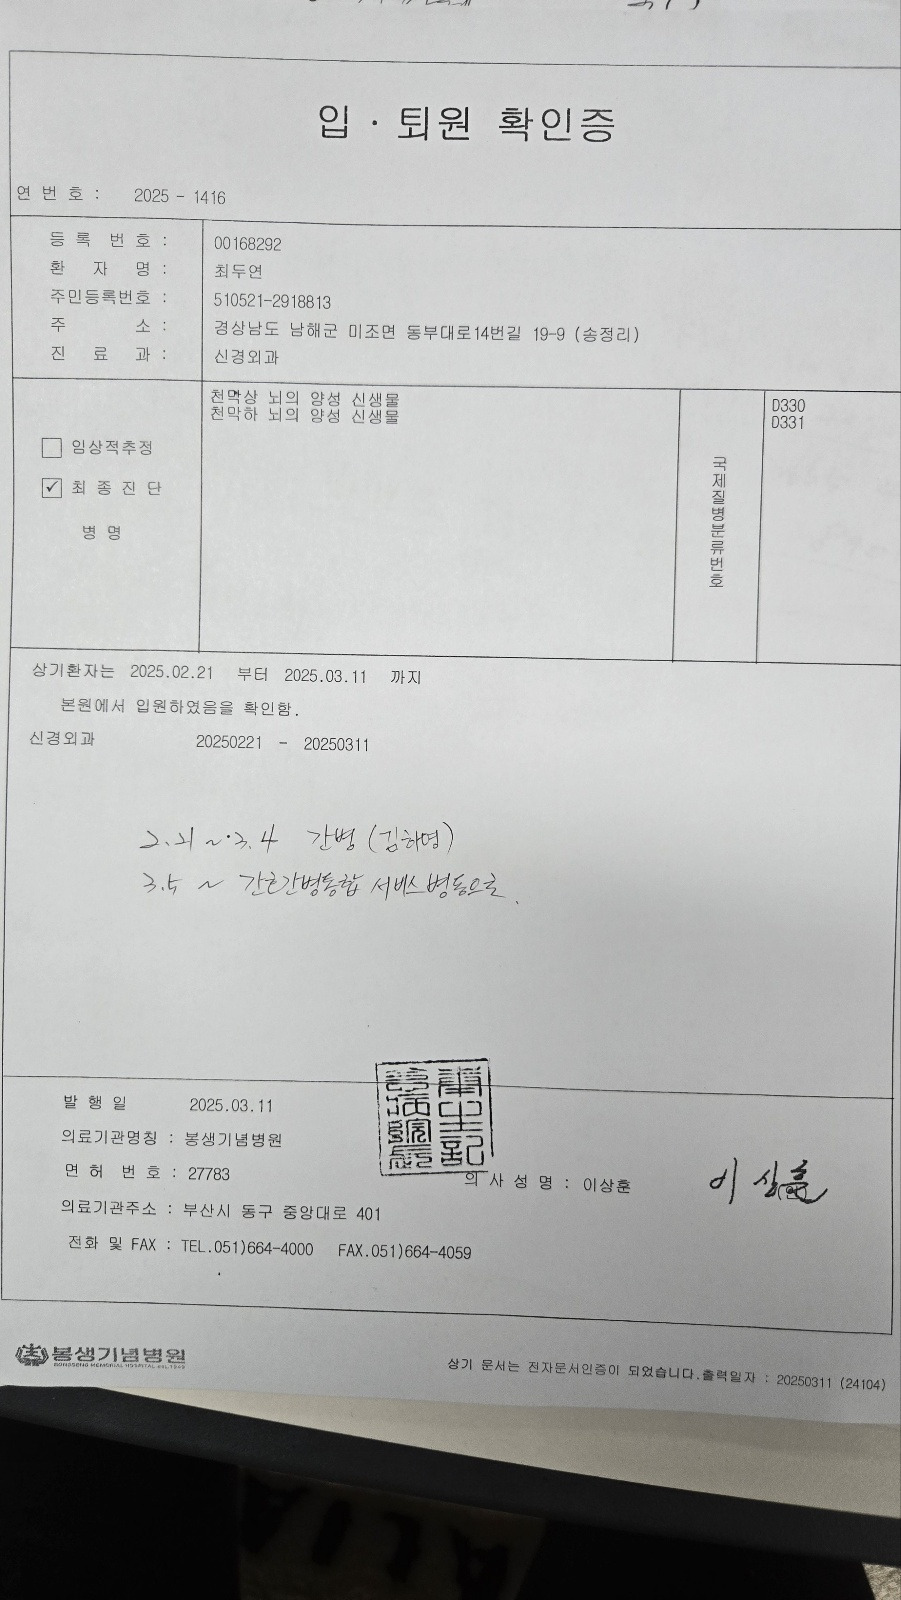 입 · 퇴원 확인증
연 번 호 : 2025 - 1416
등 록 번 호 : 00168292
환 자 명 : 최두연
주민등록번호 : 510521-2918813
주 소 : 경상남도 남해군 미조면 동부대로14번길 19-9 (송정리)
진 료 과 : 신경외과
천막상 뇌의 양성 신생물 D330
천막하 뇌의 양성 신생물 D331
임상적추정
✓ 최 종 진 단
병 명
국제질병분류번호
상기환자는 2025.02.21 부터 2025.03.11 까지
본원에서 입원하였음을 확인함.
신경외과 20250221 - 20250311
2.21 ~ 3.4 간병 (김하영)
3.5 ~ 간호간병통합 서비스병동으로.
발 행 일 2025.03.11
의료기관명칭 : 봉생기념병원
면 허 번 호 : 27783
의 사 성 명 : 이상훈 이상훈
의료기관주소 : 부산시 동구 중앙대로 401
전화 및 FAX : TEL.051)664-4000 FAX.051)664-4059
봉생기념병원
BONGSENG MEMORIAL HOSPITAL
상기 문서는 전자문서인증이 되었습니다.출력일자 : 20250311 (24104)